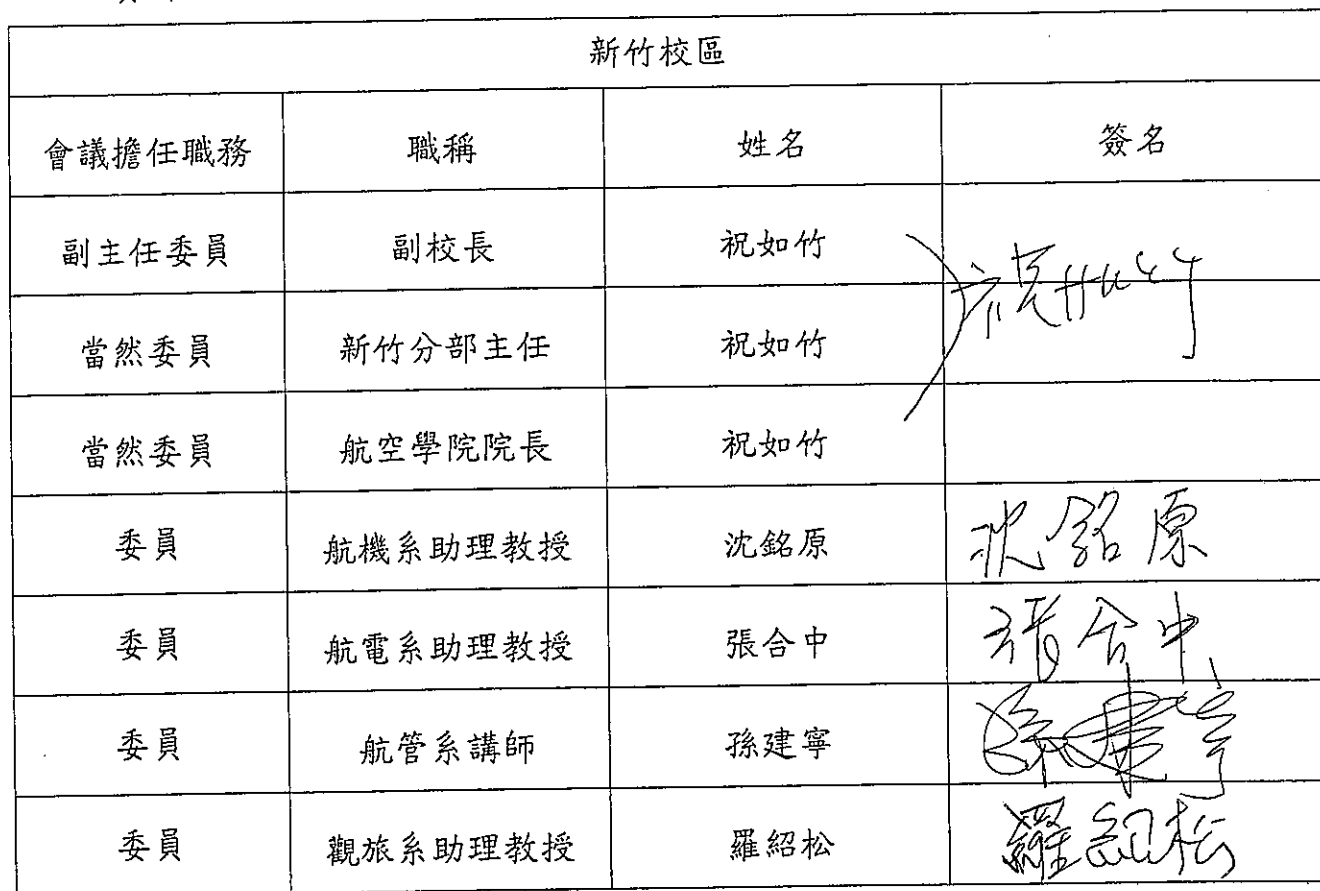 新竹校區
會議擔任職務 職稱 姓名 簽名
副主任委員 副校長 祝如竹 祝如竹
當然委員 新竹分部主任 祝如竹
當然委員 航空學院院長 祝如竹
委員 航機系助理教授 沈銘原 沈銘原
委員 航電系助理教授 張合中 張合中
委員 航管系講師 孫建寧 孫建寧
委員 觀旅系助理教授 羅紹松 羅紹松